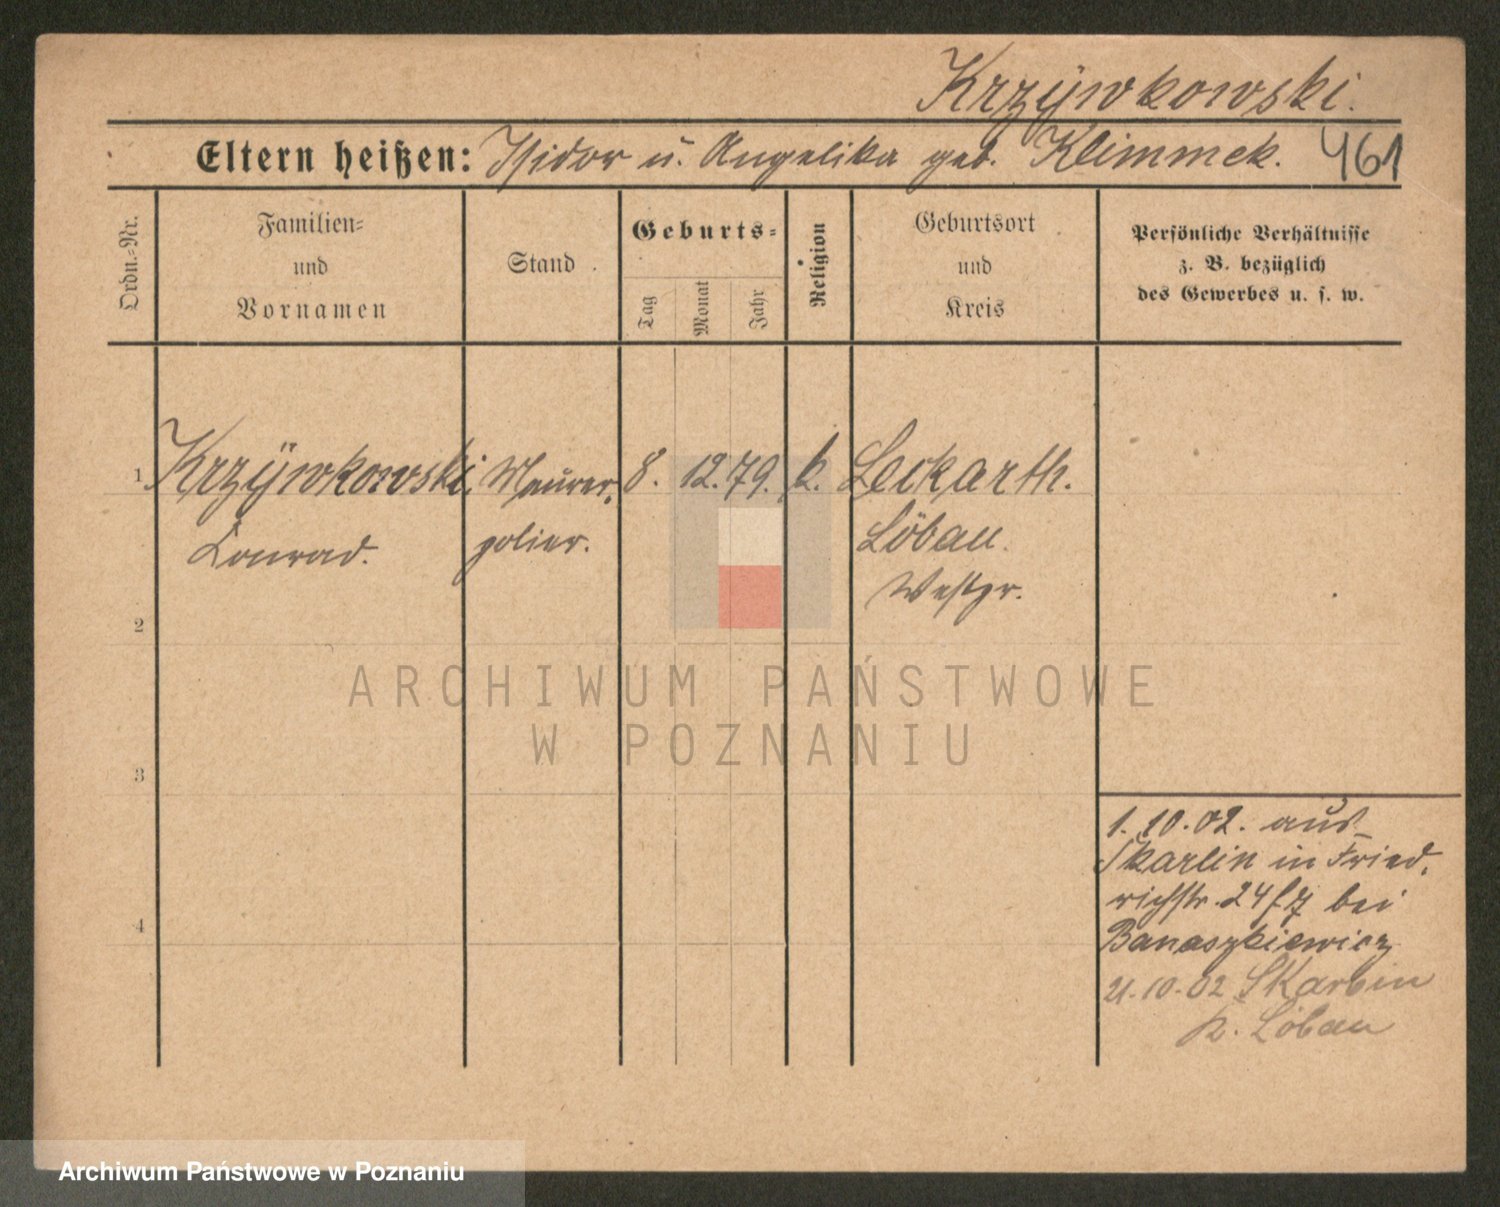 Krzÿwkowski.
Eltern heißen: Isidor u. Angelika geb. Klimmek. 461
Ordn.-Nr.
Familien-
und
Vornamen
Stand
Geburts-
Tag
Monat
Jahr
Religion
Geburtsort
und
Kreis
Persönliche Verhältnisse
z. B. bezüglich
des Gewerbes u. s. w.
1 Krzÿwkowski, Maurer- 8. 12. 79. k. Leckarth.
Konrad. polier. Löbau
Westpr.
2
3
4
1. 10. 02. aus
Skarlin in Fried-
richstr. 24 f 7 bei
Banaszkiewicz
21. 10. 02 Skarlin
K. Löbau
ARCHIWUM PAŃSTWOWE
W POZNANIU
Archiwum Państwowe w Poznaniu